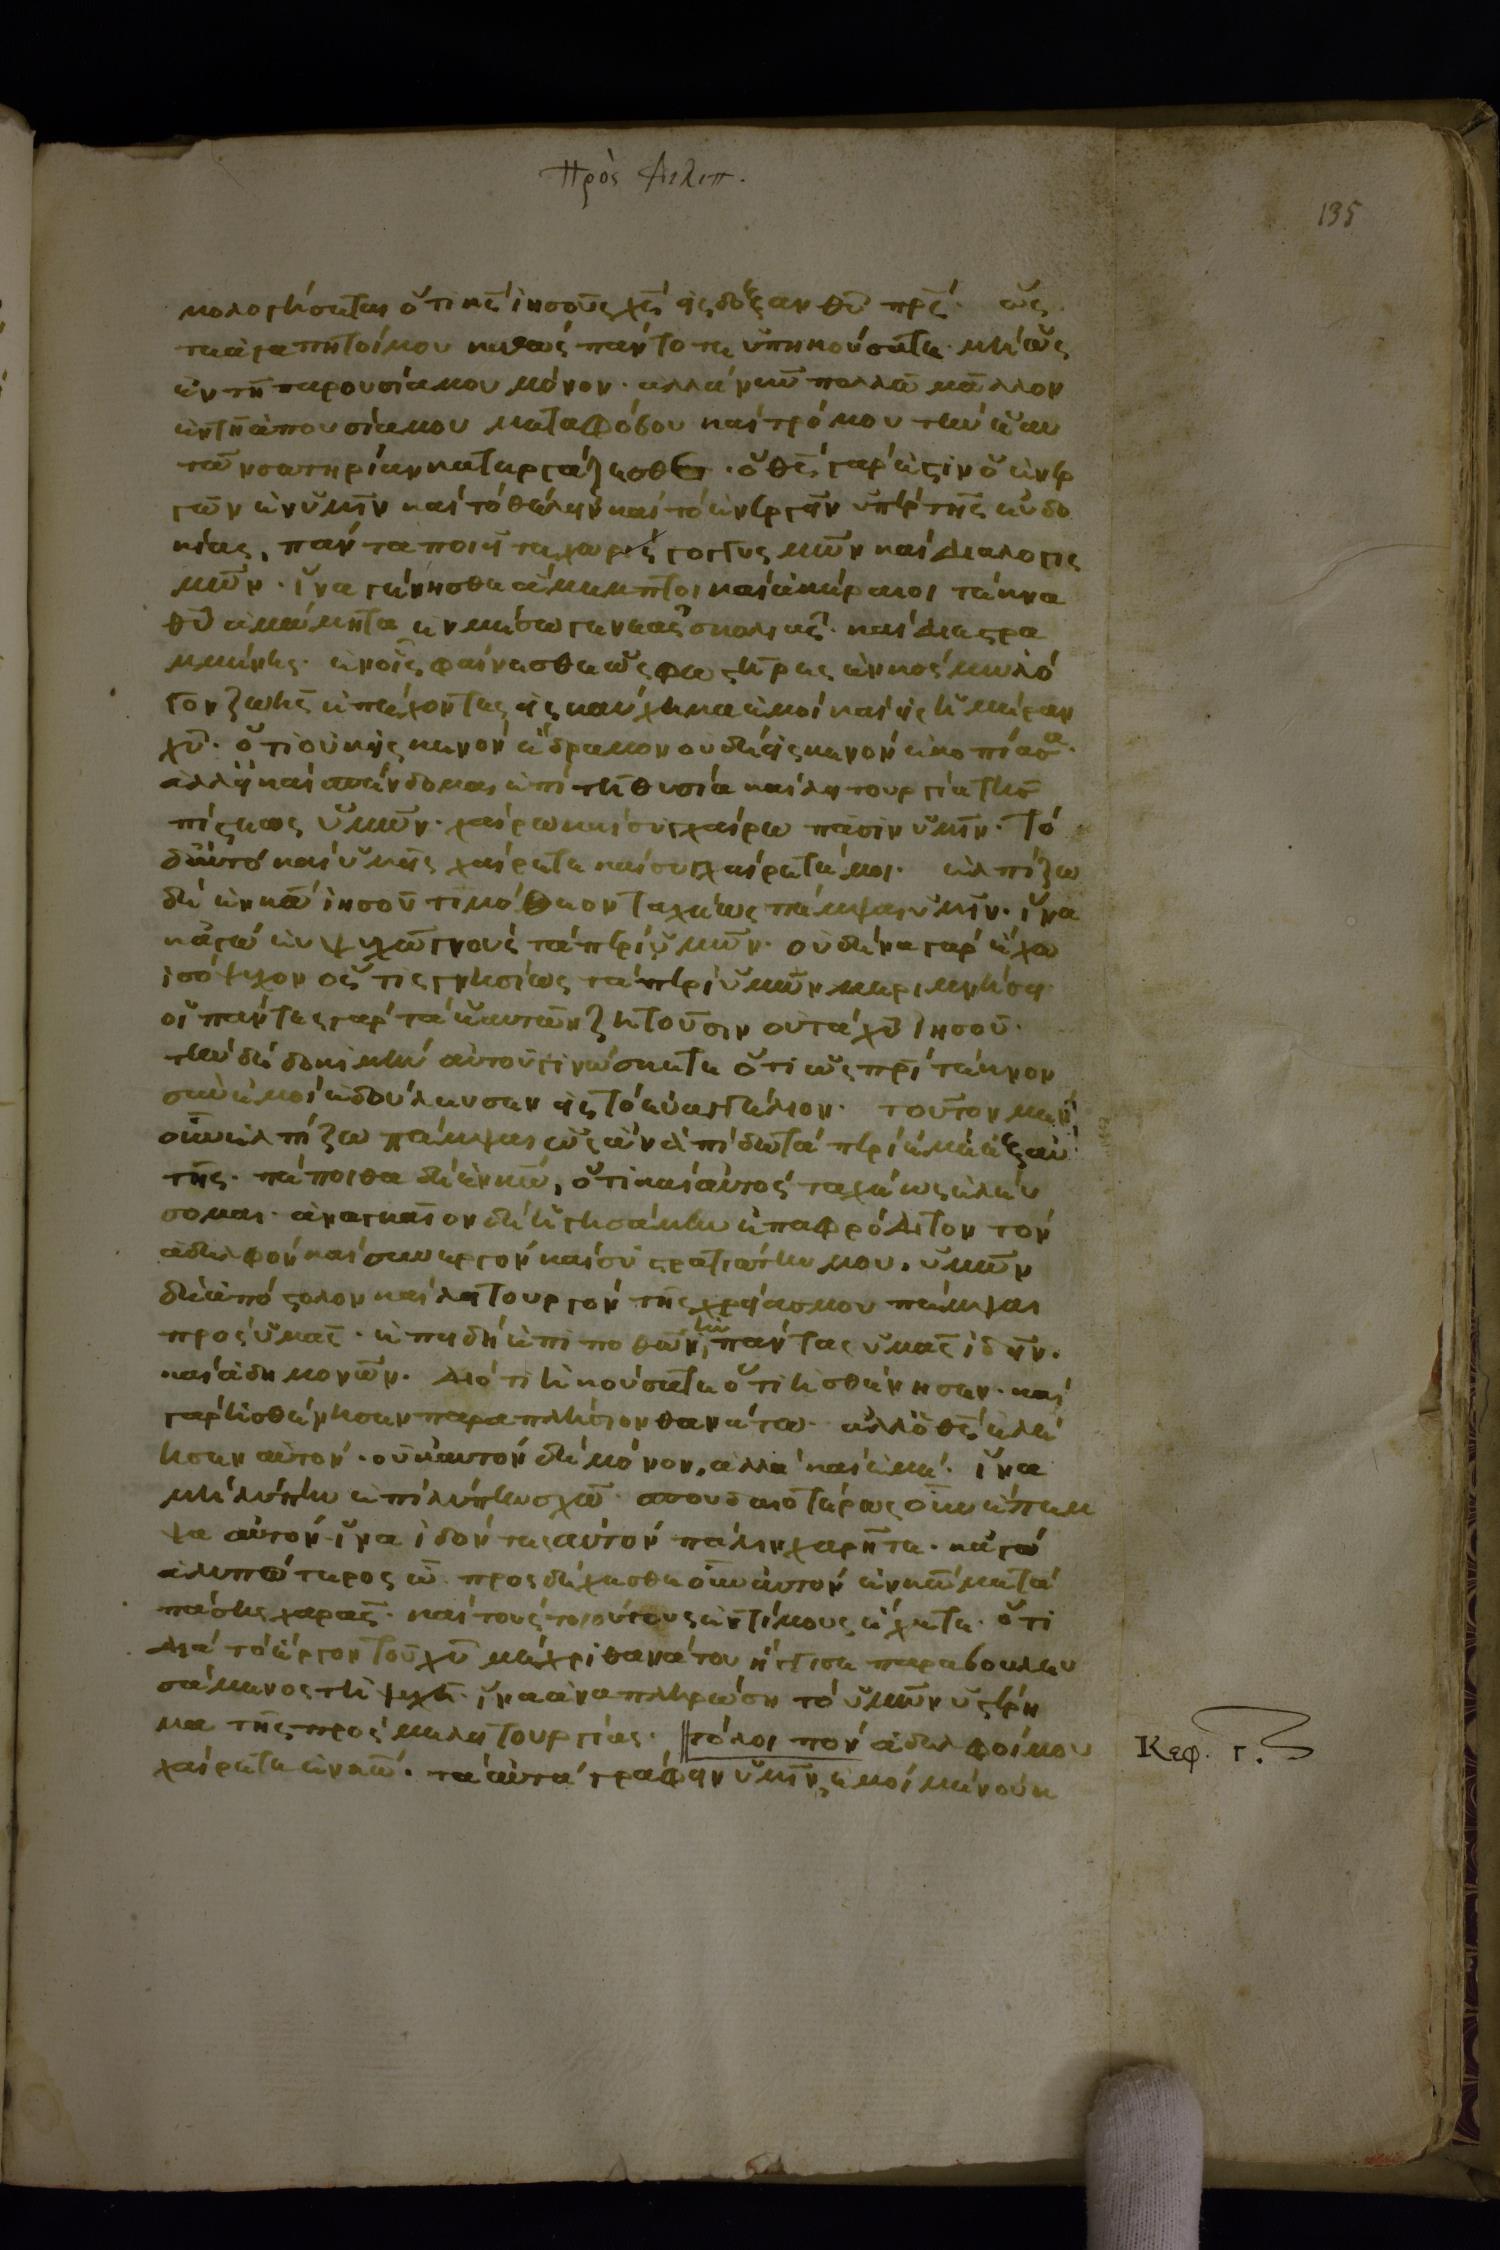 Πρὸς Φιλιπ.
135
μολογήσηται ὅτι κς ἰησοῦς χς εἰς δόξαν θυ πρς. ὥς
τε ἀγαπητοί μου καθὼς πάντοτε ὑπηκούσατε. μὴ ὡς
ἐν τῆ παρουσία μου μόνον. ἀλλὰ νῦν πολλῶ μᾶλλον
ἐν τῆ ἀπουσία μου μετα φόβου καὶ τρόμου τὴν ἑαυ
τῶν σωτηρίαν κατεργάζεσθε. ὁ θς γάρ ἐστιν ὁ ἐνερ
γῶν ἐν ὑμῖν καὶ τὸ θέλειν καὶ τὸ ἐνεργεῖν ὑπὲρ τῆς εὐδο
κίας, πάντα ποιεῖτε χωρὶς γογγυσμῶν καὶ διαλογισ
μῶν. ἵνα γένησθε ἄμεμπτοι καὶ ἀκέραιοι τέκνα
θυ ἀμώμητα ἐν μέσω γενεᾶς σκολιᾶς. καὶ διεστρα
μμένης. ἐν οἷς φαίνεσθε ὡς φωστῆρες ἐν κόσμω λό
γον ζωῆς ἐπέχοντες εἰς καύχημα ἐμοὶ καὶ εἰς ἡμέραν
χυ. ὅτι οὐκ εἰς κενὸν ἔδραμον οὐδὲ εἰς κενὸν ἐκοπίασα.
ἀλλ εἰ καὶ σπένδομαι ἐπὶ τῆ θυσία καὶ λειτουργία τῆς
πίστεως ὑμῶν. χαίρω καὶ συγχαίρω πᾶσιν ὑμῖν. τὸ
δ αὐτὸ καὶ ὑμεῖς χαίρετε καὶ συγχαίρετέ μοι. ἐλπίζω
δὲ ἐν κω ἰησοῦ τιμόθεον ταχέως πέμψαι ὑμῖν. ἵνα
κἀγὼ εὐψυχῶ γνοὺς τὰ περὶ ὑμῶν. οὐδένα γὰρ ἔχω
ἰσόψυχον ὅστις γνησίως τὰ περὶ ὑμῶν μεριμνήσει.
οἱ πάντες γὰρ τὰ ἑαυτῶν ζητοῦσιν οὐ τὰ χυ ἰησοῦ.
τὴν δὲ δοκιμὴν αὐτοῦ γινώσκετε ὅτι ὡς πρι τέκνον
σὺν ἐμοὶ ἐδούλευσεν εἰς τὸ εὐαγγέλιον. τοῦτον μὲν
οὖν ἐλπίζω πέμψαι ὡς ἂν ἀπίδω τὰ περὶ ἐμὲ ἐξ αὐ
τῆς. πέποιθα δὲ ἐν κω, ὅτι καὶ αὐτὸς ταχέως ἐλεύ
σομαι. ἀναγκαῖον δὲ ἡγησάμην ἐπαφρόδιτον τὸν
ἀδελφὸν καὶ συνεργὸν καὶ συστρατιώτην μου. ὑμῶν
δὲ ἀπόστολον καὶ λειτουργὸν τῆς χρείας μου πέμψαι
πρὸς ὑμᾶς. ἐπειδὴ ἐπιποθῶν ἦν πάντας ὑμᾶς ἰδεῖν.
καὶ ἀδημονῶν. διότι ἠκούσατε ὅτι ἠσθένησεν. καὶ
γὰρ ἠσθένησεν παραπλήσιον θανάτω. ἀλλ ὁ θς ἠλέ
ησεν αὐτόν. οὐκ αυτὸν δὲ μόνον, ἀλλὰ καὶ ἐμέ. ἵνα
μὴ λύπην ἐπὶ λύπην σχῶ. σπουδαιοτέρως οὖν ἔπεμ
ψα αὐτὸν ἵνα ἰδόντες αὐτὸν πάλιν χαρῆτε. κἀγὼ
ἀλυπώτερος ὦ. προσδέχεσθε οὖν αὐτὸν ἐν κω μετὰ
πάσης χαρᾶς. καὶ τοὺς τοιούτους ἐντίμους ἔχετε. ὅτι
διὰ τὸ ἔργον τοῦ χυ μέχρι θανάτου ἤγγισε παραβουλευ
σάμενος τῆ ψυχῆ. ἵνα ἀναπληρώση τὸ ὑμῶν ὑστέρη
μα τῆς πρός με λειτουργίας. τὸ λοιπὸν ἀδελφοί μου
Κεφ. γ.
χαίρετε ἐν κω. τὰ αὐτὰ γράφειν ὑμῖν ἐμοὶ μὲν οὐκ